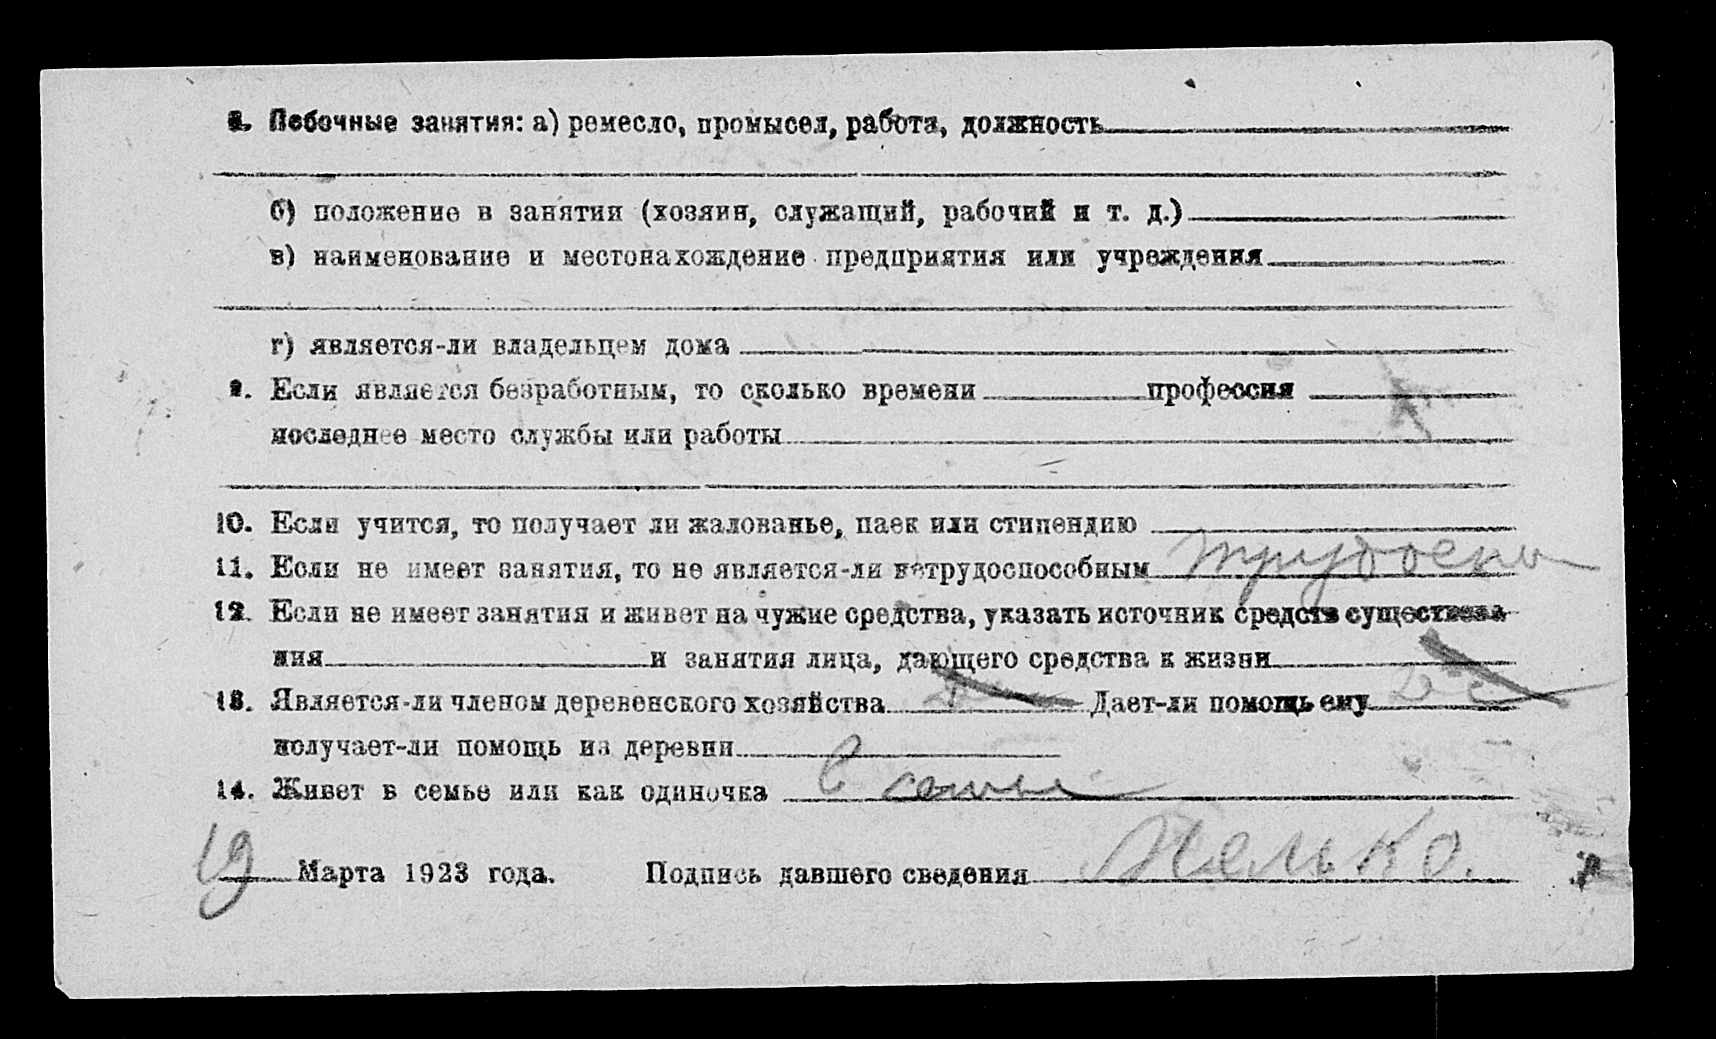 8. Побочные занятия: а) ремесло, промысел, работа, должность
б) положение в занятии (хозяин, служащий, рабочий и т. д.)
в) наименование и местонахождение предприятия или учреждения
г) является-ли владельцем дома
9. Если является безработным, то сколько времени профессия
последнее место службы или работы
10. Если учится, то получает ли жалованье, паек или стипендию
11. Если не имеет занятия, то не является-ли нетрудоспособным трудоспо
12. Если не имеет занятия и живет на чужие средства, указать источник средств существова
ния и занятия лица, дающего средства к жизни
13. Является-ли членом деревенского хозяйства Дает-ли помощь ему
получает-ли помощь из деревни
14. Живет в семье или как одиночка в семье
19 Марта 1923 года. Подпись давшего сведения